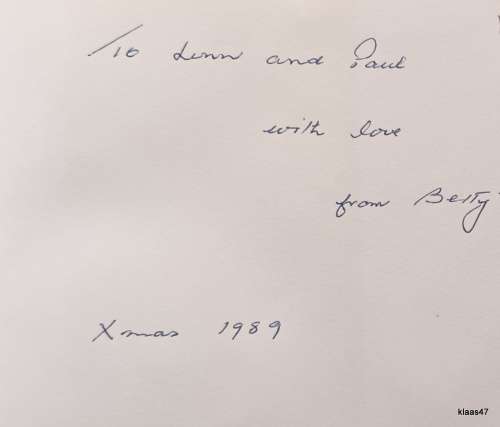 To Linn and Paul
with love
from Betty
Xmas 1989
klaas47